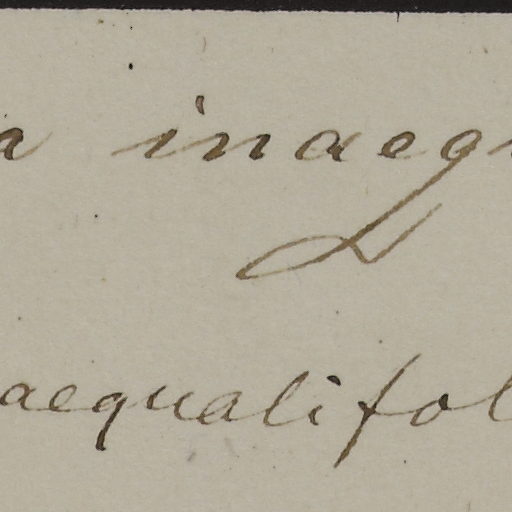 a inaequ
aequalifol